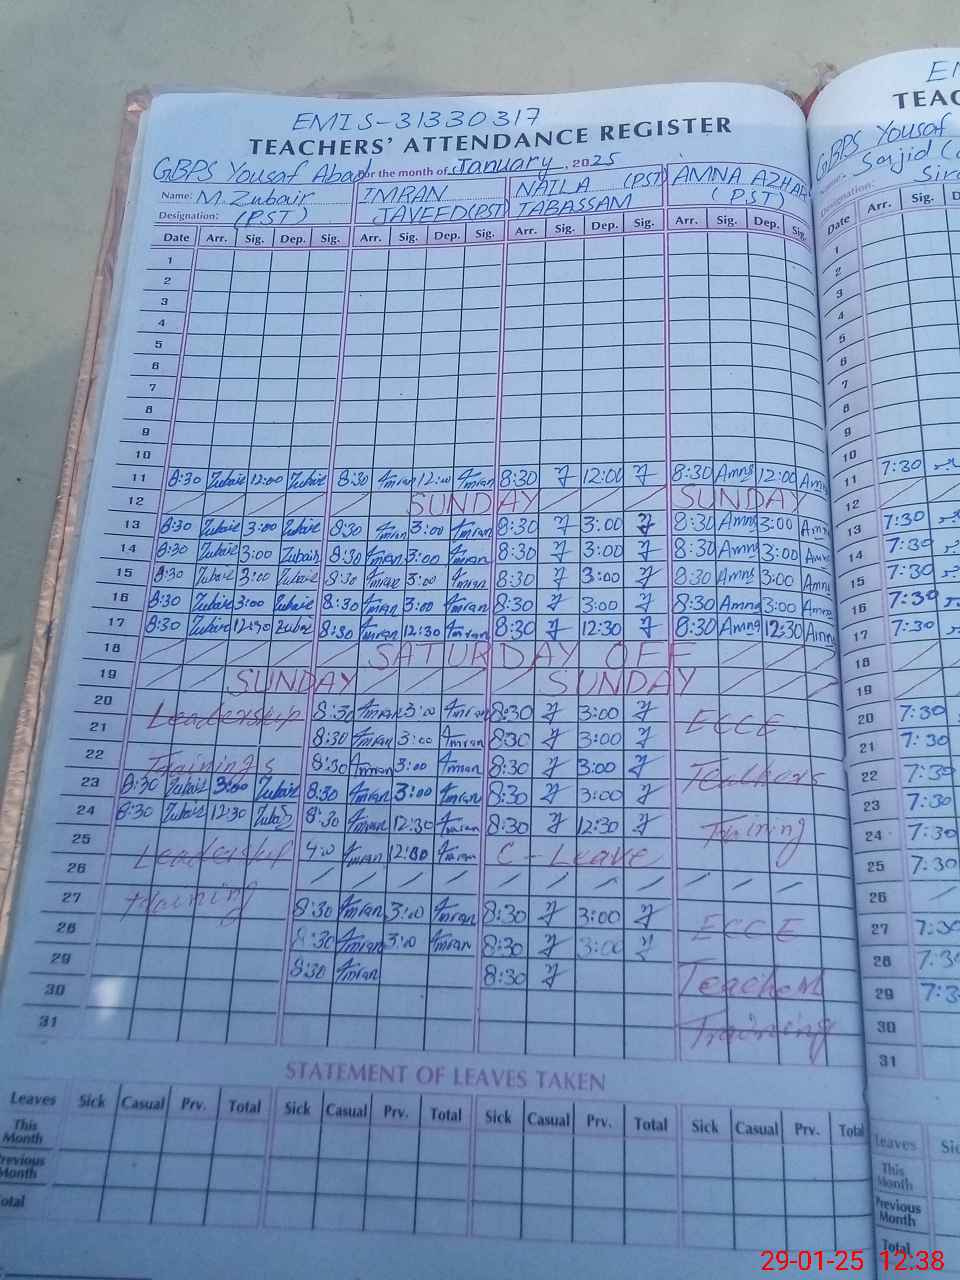 EMIS-31330317
TEACHERS' ATTENDANCE REGISTER
GBPS Yousaf Abad For the month of January, 2025
Name: M. Zubair IMRAN NAILA (PST) AMNA AZHAR
Designation: (PST) JAVEED (PST) TABASSAM (PST)
Date Arr. Sig. Dep. Sig. Arr. Sig. Dep. Sig. Arr. Sig. Dep. Sig. Arr. Sig. Dep. Sig.
1
2
3
4
5
6
7
8
9
10
11 8:30 Zubair 12:00 Zubair 8:30 Imran 12:00 Imran 8:30 12:00 8:30 Amna 12:00 Amna
12 SUNDAY SUNDAY
13 8:30 Zubair 3:00 Zubair 8:30 Imran 3:00 Imran 8:30 3:00 8:30 Amna 3:00 Amna
14 8:30 Zubair 3:00 Zubair 8:30 Imran 3:00 Imran 8:30 3:00 8:30 Amna 3:00 Amna
15 8:30 Zubair 3:00 Zubair 8:30 Imran 3:00 Imran 8:30 3:00 8:30 Amna 3:00 Amna
16 8:30 Zubair 3:00 Zubair 8:30 Imran 3:00 Imran 8:30 3:00 8:30 Amna 3:00 Amna
17 8:30 Zubair 12:30 Zubair 8:30 Imran 12:30 Imran 8:30 12:30 8:30 Amna 12:30 Amna
18 SATURDAY OFF
19 SUNDAY SUNDAY
20 Leadership 8:30 Imran 3:00 Imran 8:30 3:00 ECCE
21 8:30 Imran 3:00 Imran 8:30 3:00
22 Trainings 8:30 Imran 3:00 Imran 8:30 3:00 Teachers
23 8:30 Zubair 3:00 Zubair 8:30 Imran 3:00 Imran 8:30 3:00
24 8:30 Zubair 12:30 Zubair 8:30 Imran 12:30 Imran 8:30 12:30 Training
25 Leadership Imran Imran C-Leave
26
27 training 8:30 Imran 3:00 Imran 8:30 3:00 ECCE
28 8:30 Imran 3:00 Imran 8:30 3:00
29 8:30 Imran 8:30 Teachers
30
31 Training
STATEMENT OF LEAVES TAKEN
Leaves Sick Casual Prv. Total Sick Casual Prv. Total Sick Casual Prv. Total Sick Casual Prv. Total
This Month
Previous Month
Total
EM
TEAC
GBPS Yousaf
Sajid
Name:
Designation:
Date Arr. Sig. D
1
2
3
4
5
6
7
8
9
10
11 7:30
12
13 7:30
14 7:30
15 7:30
16 7:30
17 7:30
18
19
20 7:30
21 7:30
22 7:30
23 7:30
24 7:30
25 7:30
26
27 7:30
28 7:3
29 7:3
30
31
Leaves Sic
This Month
Previous Month
Total
29-01-25 12:38